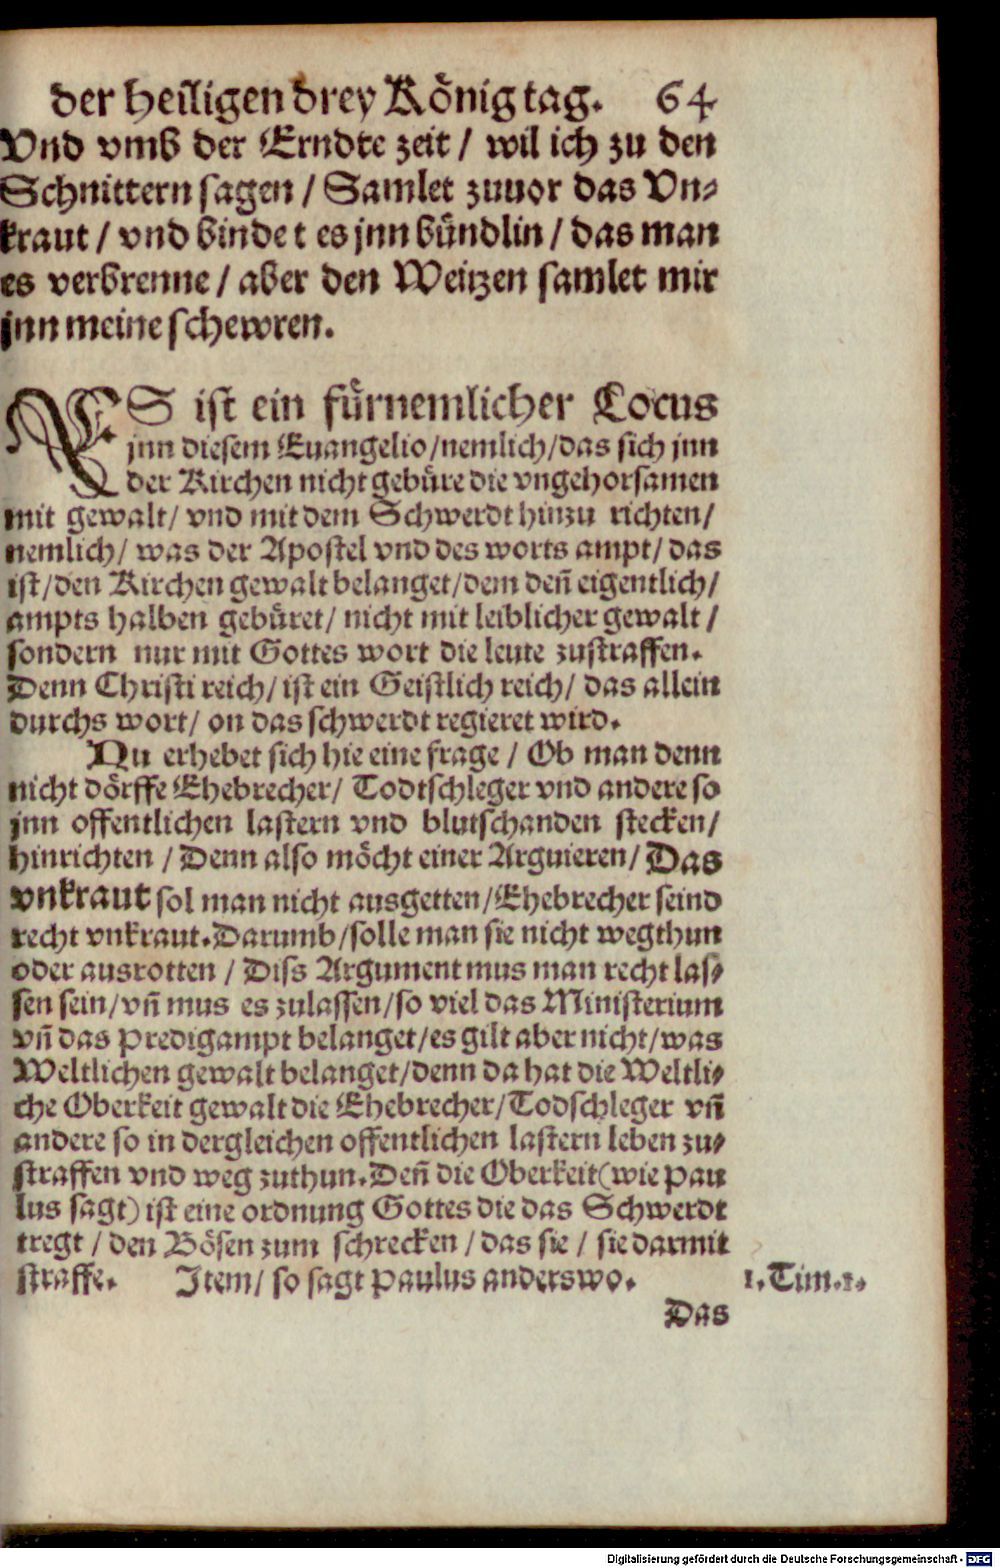 der heiligen drey König tag. 64
Vnd vmb der Erndte zeit / wil ich zu den
Schnittern sagen / Samlet zuuor das Vn-
kraut / vnd bindet es jnn bündlin / das man
es verbrenne / aber den Weitzen samlet mir
jnn meine schewren.
ES ist ein fürnemlicher Locus
jnn diesem Euangelio/nemlich/das sich jnn
der Kirchen nicht gebüre die vngehorsamen
mit gewalt/ vnd mit dem Schwerdt hinzu richten/
nemlich/ was der Apostel vnd des worts ampt/ das
ist/den Kirchen gewalt belanget/dem deñ eigentlich/
ampts halben gebüret/ nicht mit leiblicher gewalt /
sondern nur mit Gottes wort die leute zustraffen.
Denn Christi reich/ ist ein Geistlich reich/ das allein
durchs wort/ on das schwerdt regieret wird.
Nu erhebet sich hie eine frage / Ob man denn
nicht dörffe Ehebrecher/ Todtschleger vnd andere so
jnn offentlichen lastern vnd blutschanden stecken/
hinrichten / Denn also möcht einer Arguieren/ Das
vnkraut sol man nicht ausgetten/Ehebrecher seind
recht vnkraut.Darumb/solle man sie nicht wegthun
oder ausrotten / Diss Argument mus man recht las-
sen sein/vñ mus es zulassen/so viel das Ministerium
vñ das Predigampt belanget/es gilt aber nicht/was
Weltlichen gewalt belanget/denn da hat die Weltli-
che Oberkeit gewalt die Ehebrecher/Todschleger vñ
andere so in dergleichen offentlichen lastern leben zu-
straffen vnd weg zuthun.Deñ die Oberkeit(wie Pau
lus sagt) ist eine ordnung Gottes die das Schwerdt
tregt / den Bösen zum schrecken / das sie / sie darmit
straffe. Item/ so sagt Paulus anderswo. 1.Tim.1.
Das
Digitalisierung gefördert durch die Deutsche Forschungsgemeinschaft - DFG